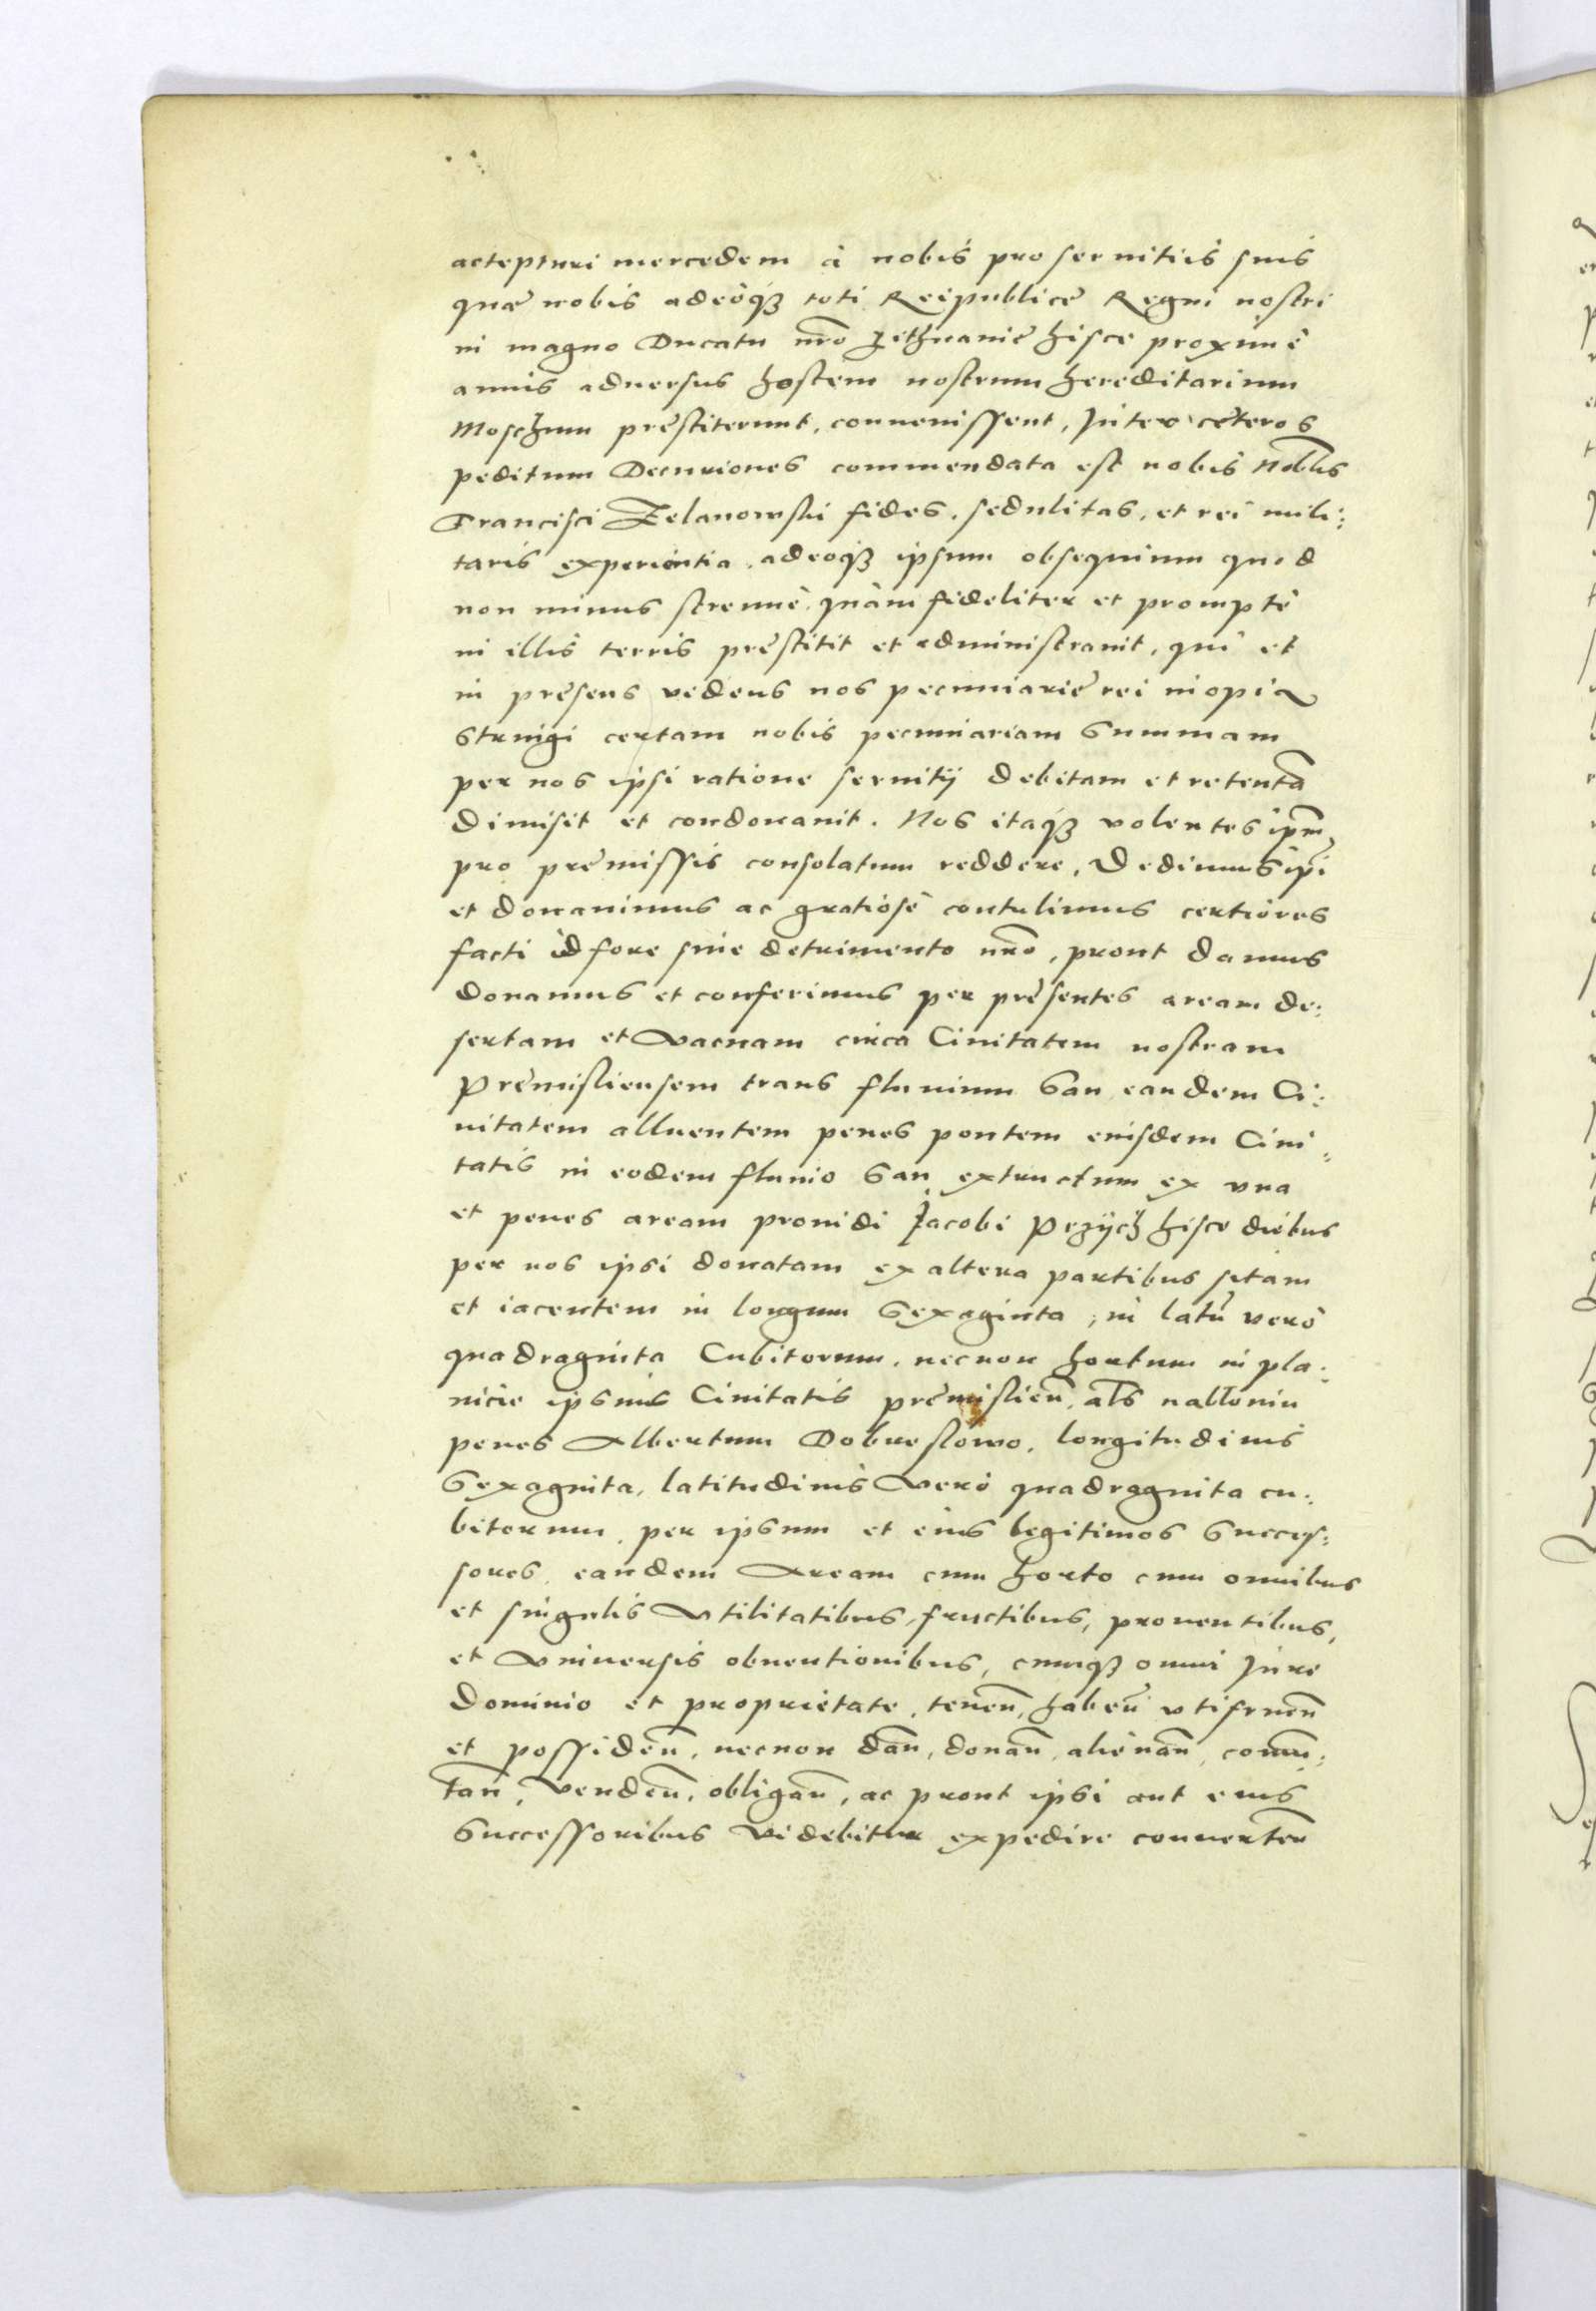 accepturi mercedem à nobis pro seruitiis suis
quæ nobis adeoq3 toti Reipublicę Regni nostri
in magno Ducatu nr̃o Lithuanię hisce proximè
annis aduersus hostem nostrum hereditarium
Moschum pręstiterunt, conuenissent, Inter cęteros
peditum Decuriones commendata est nobis Nobilis
Francisci Zelanowski fides, sedulitas, et rei mili:
taris experientia, adeoq3 ipsum obsequium quod
non minus strenuè, quàm fideliter et promptè
in illis terris pręstitit et administrauit, qui et
in pręsens videns nos pecuniarię rei inopia
stringi certam nobis pecuniariam summam
per nos ipsi ratione seruitij debitam et retentã
dimisit et condonauit. Nos itaq3 volentes ip̃m
pro pręmissis consolatum reddere, Dedimus ip̃i
et donauimus ac gratiosè contulimus certiores
facti id fore sine detrimento nr̃o, prout damus
donamus et conferimus per pręsentes aream de:
sertam et vacuam circa Ciuitatem nostram
Pręmisliensem trans fluuium San eandem Ci:
uitatem alluentem penes pontem eiusdem Ciui:
tatis in eodem fluuio San extructum ex vna
et penes aream prouidi Jacobi Pezÿch hisce diebus
per nos ipsi donatam ex altera partibus sitam
et iacentem in longum sexaginta, in latũ verò
quadraginta Cubitorum, necnon hortum in pla:
nicie ipsius Ciuitatis pręmislieñ, al̃s nabloniu
penes Albertum Dobreslowo, longitudinis
sexaginta, latitudinis verò quadraginta cu:
bitorum, per ipsum et eius legitimos succes:
sores, eandem Aream cum horto cum omnibus
et singulis vtilitatibus, fructibus, prouentibus,
et vniuersis obuentionibus, cumq3 omni Jure
dominio et proprietate, teneñ, habeñ vtifrueñ
et possideñ, necnon dañ, donañ, alienañ, com̃u:
tañ, vendeñ, obligañ, ac prout ipsi aut eius
successoribus videbitur expedire conuerteñ